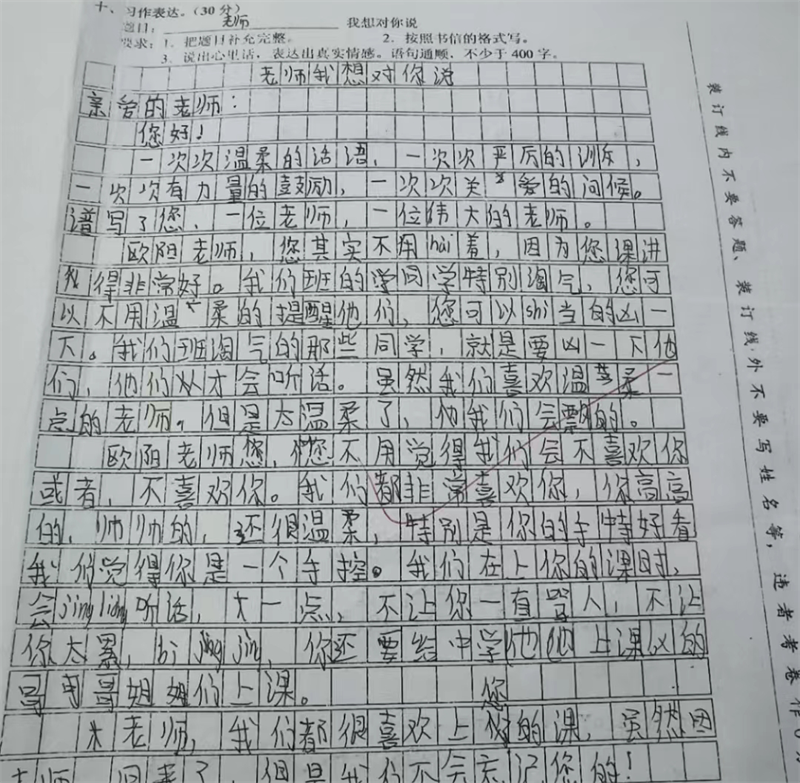 十、习作表达。（30分）
题目：老师 我想对你说
要求：1. 把题目补充完整。 2. 按照书信的格式写。
3. 说出心里话，表达出真实情感。语句通顺，不少于 400 字。
老师我想对你说
亲爱的老师：
您好！
一次次温柔的话语，一次次严厉的训斥，
一次次有力量的鼓励，一次次关爱的问候。
谱写了您，一位老师，一位伟大的老师。
欧阳老师，您其实不用hài羞，因为您课讲
得非常好。我们班的学同学特别淘气，您可
以不用温柔的提醒他们，您可以shì当的凶一
下。我们班淘气的那些同学，就是要凶一下他
们，他们才会听话。虽然我们喜欢温柔一
点的老师。但是太温柔了，我们会飘的。
欧阳老师您，您不用觉得我们会不喜欢你
或者，不喜欢你。我们都非常喜欢你，你高高
的，帅帅的，还很温柔，特别是你的手特好看
我们觉得你是一个手控。我们在上你的课时，
会jìng liàng听话，大一点，不让你一直骂人，不让
你太累，bì jìng jìn，你还要给中学他他上课的
哥哥姐姐们上课。 您
老师，我们都很喜欢上你的课，虽然因
老师 回来了，但是我们不会忘记您的！
装订线内不要答题、装订线外不要写姓名等，违者考卷作0